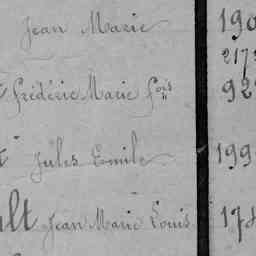 Jean Marie 190
217
Frédéric Marie fois 92
Jules Emile 199
Jean Marie Louis 178